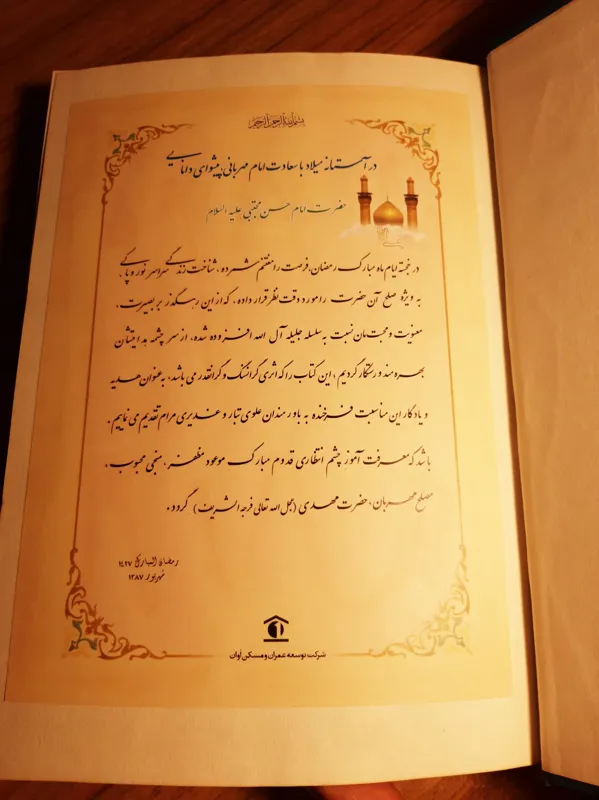 بسم الله الرحمن الرحیم
در آستانه میلاد با سعادت امام مهربانی، پیشوای دانایی
حضرت امام حسن مجتبی علیه السلام
در خجسته ایام ماه مبارک رمضان، فرصت را مغتنم شمرده، شناخت زندگی سراسر نور و پاکی،
به ویژه صلح آن حضرت را مورد دقت نظر قرار داده، که از این رهگذر بر بصیرت،
معنویت و محبت‌مان نسبت به سلسله جلیله آل الله افزوده شده، از سرچشمه هدایتشان
بهره‌مند و رستگار گردیم، این کتاب را که اثری گرانسنگ و گرانقدر می باشد، به عنوان هدیه
و یادگار این مناسبت فرخنده به باورمندان علوی تبار و غدیری مرام تقدیم می نماییم.
باشد که معرفت آموز چشم انتظاری قدوم مبارک موعود مظفر، منجی محبوب،
مصلح مهربان، حضرت مهدی (عجل الله تعالی فرجه الشریف) گردد.
رمضان المبارک ۱۴۲۷
شهریور ۱۳۸۷
شرکت توسعه عمران و مسکن آوان